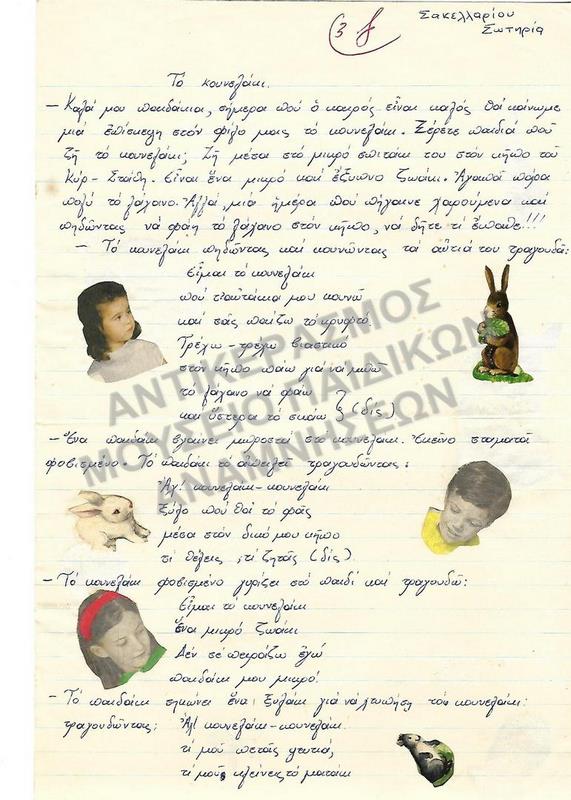 3
Σακελλαρίου
Σωτηρία
Τό κουνελάκι.
– Καλά μου παιδάκια, σήμερα πού ὁ καιρός εἶναι καλός θά κάνωμε
μιά ἐπίσκεψη στόν φίλο μας τό κουνελάκι. Ξέρετε παιδιά πού
ζῆ τό κουνελάκι; Ζῆ μέσα στό μικρό σπιτάκι του στόν κῆπο τοῦ
Κύρ-Στάθη. Εἶναι ἕνα μικρό καί ἐξυπνο ζωάκι. Ἀγαπᾶ πάρα
πολύ τό λάχανο. Ἀλλά, μιά ἡμέρα πού πήγαινε χαρούμενα καί
πηδῶντας νά φάη τό λάχανο στόν κῆπο, νά δῆτε τί ἔπαθε!!!
– Τό κουνελάκι πηδῶντας καί κουνῶντας τά αὐτιά του τραγουδᾶ:
Εἶμαι τό κουνελάκι
πού τ' αὐτάκια μου κουνῶ
καί σᾶς παίζω τό κρυφτό.
Τρέχω-τρέχω βιαστικό
στόν κῆπο πάω γιά νά μπῶ
τό λάχανο νά φάω
καί ὕστερα τό σκάω } (δίς)
– Ἕνα παιδάκι βγαίνει μπροστά στό κουνελάκι. Ἐκεῖνο σταματᾶ
φοβισμένο. Τό παιδάκι τό ἀπειλεῖ τραγουδῶντας:
Ἄχ! κουνελάκι-κουνελάκι
ξύλο πού θά τό φᾶς
μέσα στόν δικό μου κῆπο
τί θέλεις, τί ζητᾶς (δίς).
– Τό κουνελάκι φοβισμένο γυρίζει στό παιδί καί τραγουδᾶ:
Εἶμαι τό κουνελάκι
ἕνα μικρό ζωάκι
Δέν σέ πειράζω ἐγώ
παιδάκι μου μικρό!
– Τό παιδάκι σηκώνει ἕνα ξυλάκι γιά νά χτυπήση τό κουνελάκι
τραγουδῶντας: Ἄχ! κουνελάκι-κουνελάκι
τί μοῦ πετᾶς
τί μοῦ κλείνεις τό ματάκι
ΑΝΤΙΚΕΡΑΣΜΟΣ
ΜΟΥΣΕΙΟ ΠΑΙΔΙΚΩΝ
ΑΝΑΜΝΗΣΕΩΝ